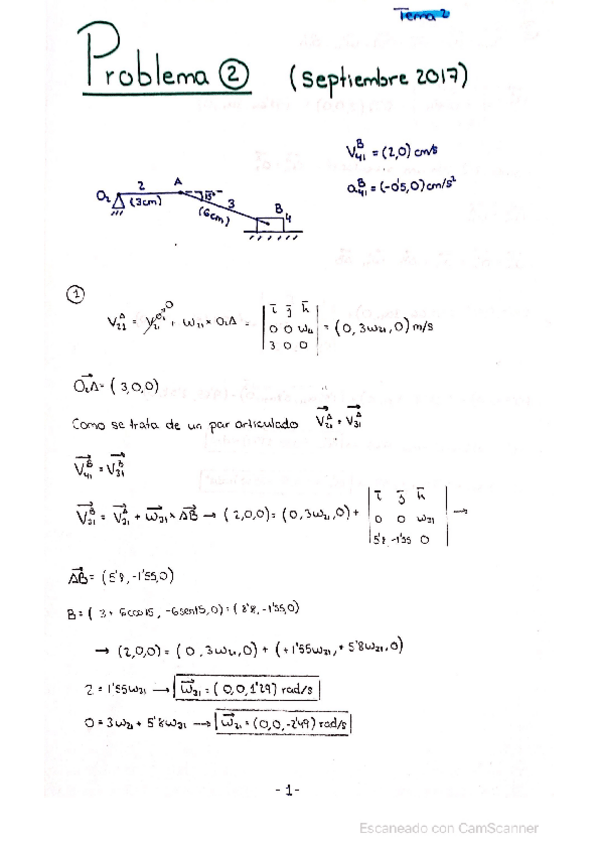 Tema 2
Problema ② (Septiembre 2017)
V₄₁ᴮ = (2,0) cm/s
a₄₁ᴮ = (-0'5,0) cm/s²
O₂ 2 A 15° 3 B 4
(3cm) (6cm)
①
V₂₁ᴬ = V₂₁ᴼ² ⁰ + ω₂₁ × O₂A = | i j k | = (0, 3ω₂₁, 0) m/s
0 0 ω₂₁
3 0 0
O₂A = (3,0,0)
Como se trata de un par articulado V₂₁ᴬ = V₃₁ᴬ
V₄₁ᴮ = V₃₁ᴮ
V₃₁ᴮ = V₃₁ᴬ + ω₃₁ × AB → (2,0,0) = (0, 3ω₂₁, 0) + | i j k | →
0 0 ω₃₁
5'8 -1'55 0
AB = (5'8, -1'55, 0)
B = (3 + 6cos15, -6sen15, 0) = (8'8, -1'55, 0)
→ (2,0,0) = (0, 3ω₂₁, 0) + (+1'55ω₃₁, +5'8ω₃₁, 0)
2 = 1'55ω₃₁ → ω₃₁ = (0,0,1'29) rad/s
0 = 3ω₂₁ + 5'8ω₃₁ → ω₂₁ = (0,0,-2'49) rad/s
- 1 -
Escaneado con CamScanner